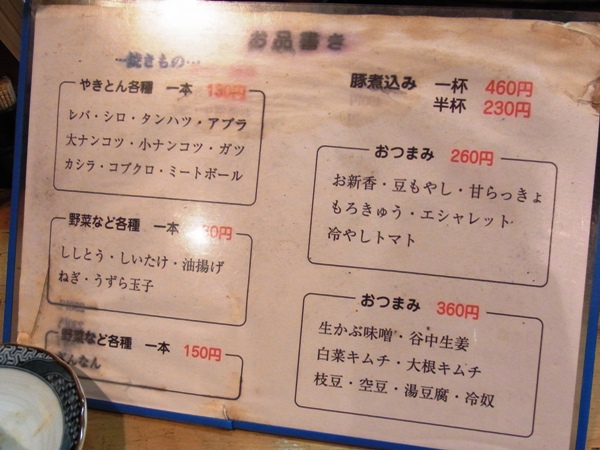 お品書き
…焼きもの…
やきとん各種 一本 130円
レバ・シロ・タンハツ・アブラ
大ナンコツ・小ナンコツ・ガツ
カシラ・コブクロ・ミートボール
野菜など各種 一本 30円
ししとう・しいたけ・油揚げ
ねぎ・うずら玉子
野菜など各種 一本 150円
ぎんなん
豚煮込み 一杯 460円
半杯 230円
おつまみ 260円
お新香・豆もやし・甘らっきょ
もろきゅう・エシャレット
冷やしトマト
おつまみ 360円
生かぶ味噌・谷中生姜
白菜キムチ・大根キムチ
枝豆・空豆・湯豆腐・冷奴